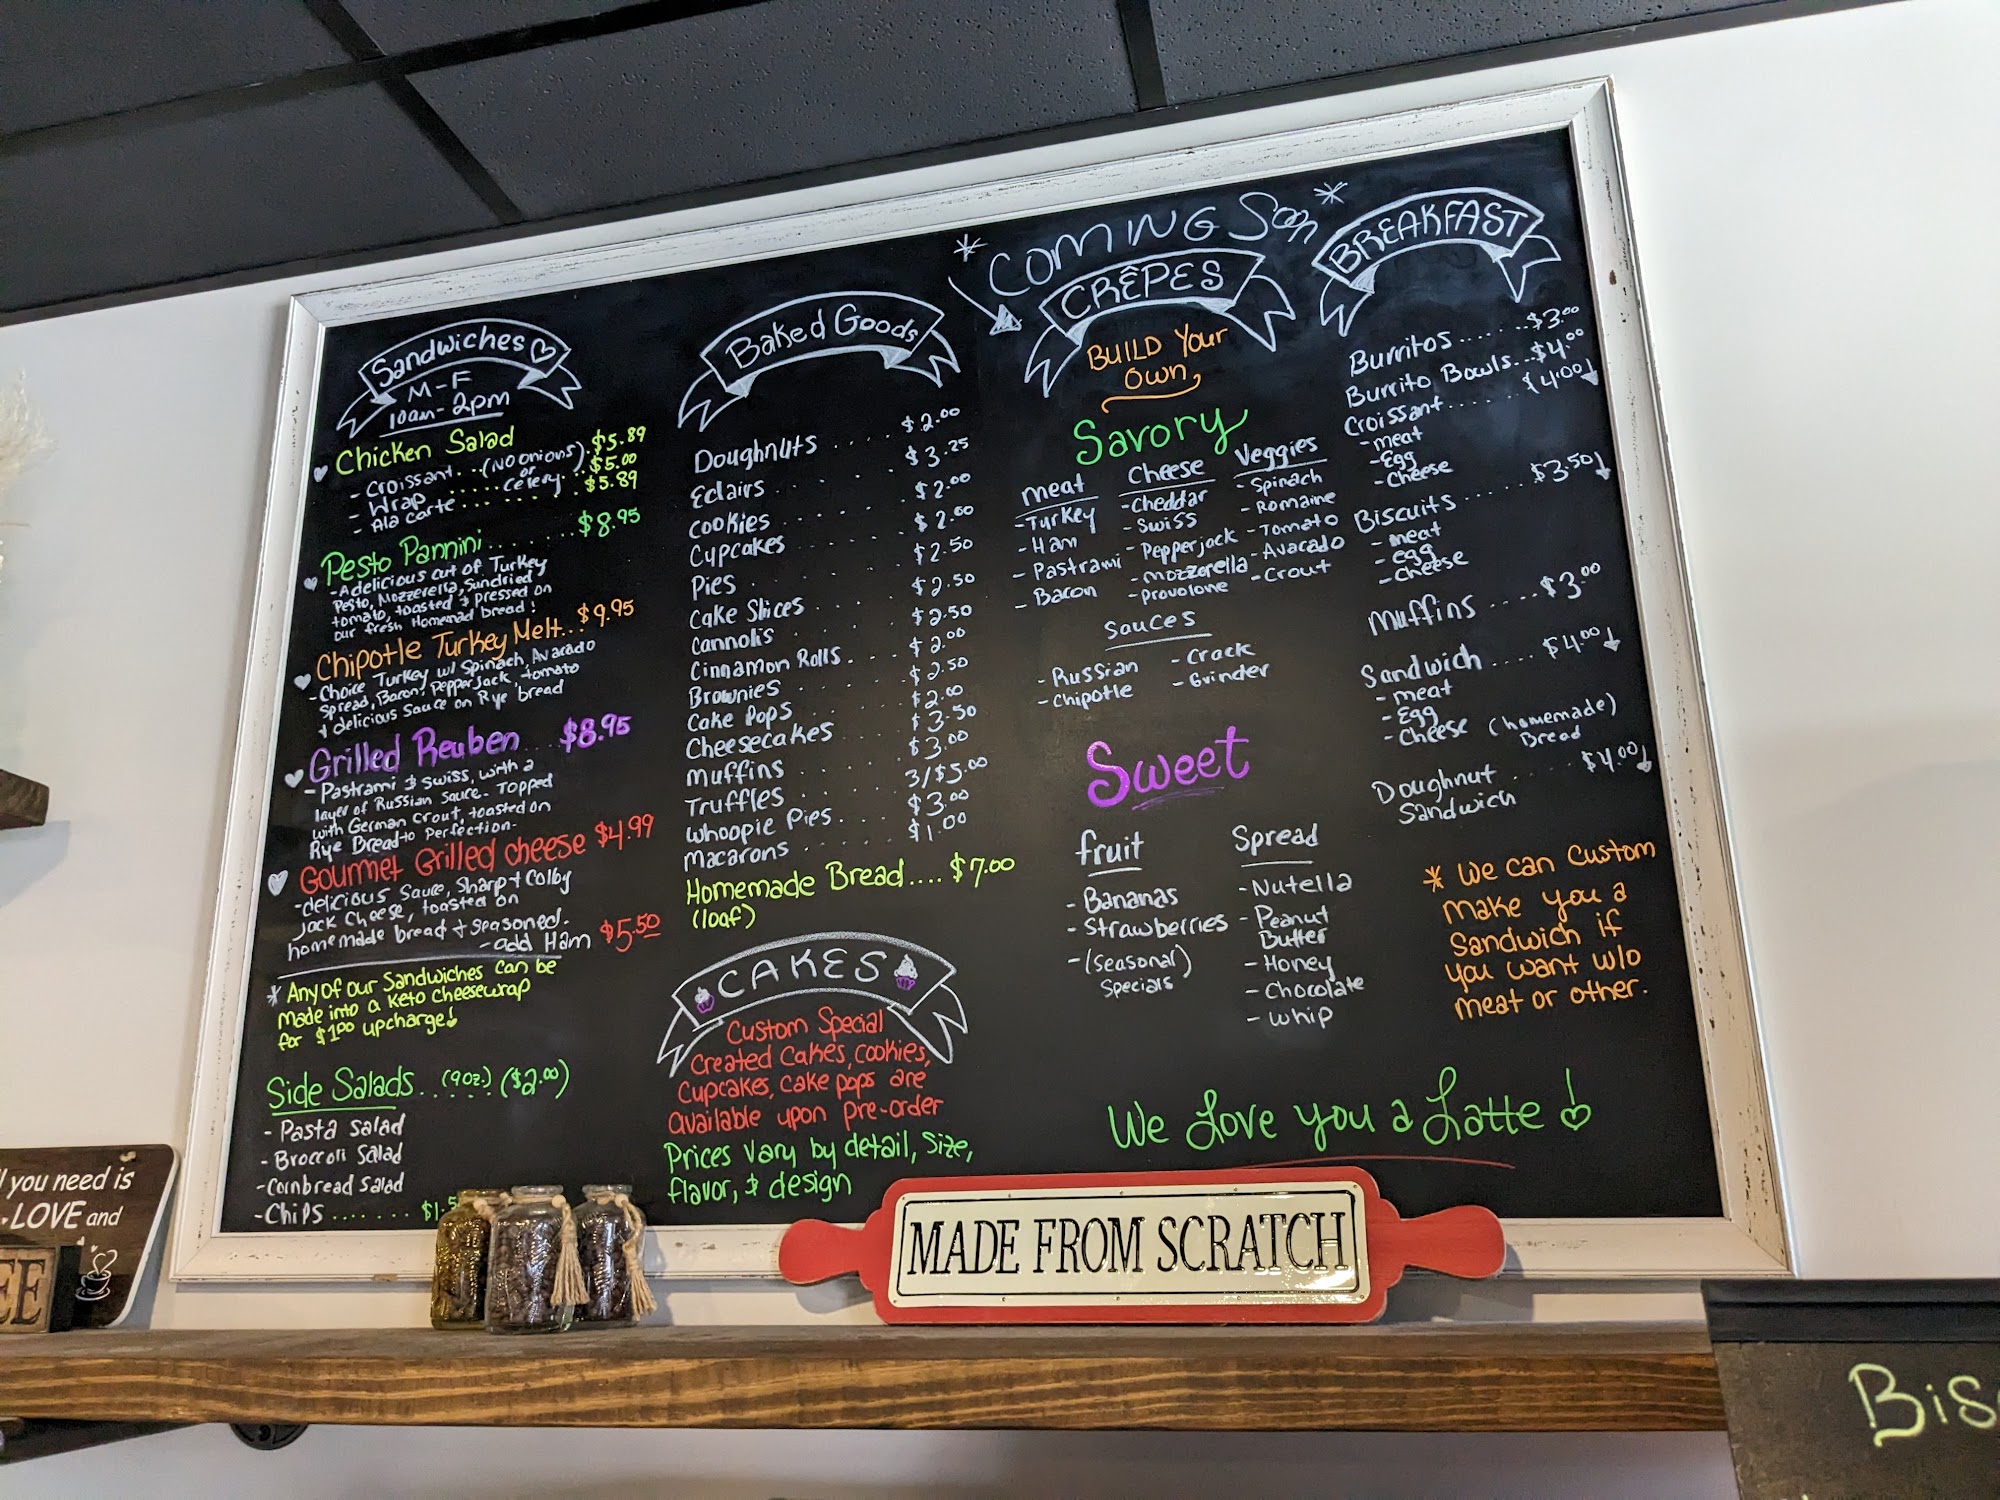 Sandwiches
M-F
10am-2pm
Chicken Salad
- Croissant...(NO onions). $5.89
or
- Wrap ..... celery... $5.00
- Ala carte ........ $5.89
Pesto Pannini ........ $8.95
- A delicious cut of Turkey
Pesto, Mozzerella, Sundried
tomato, toasted & pressed on
our fresh Homemad bread!
Chipotle Turkey Melt.. $9.95
- Choice Turkey w/ Spinach, Avacado
Spread, Bacon, Pepper Jack, tomato
& delicious sauce on Rye bread
Grilled Reuben ... $8.95
- Pastrami & Swiss, with a
layer of Russian sauce- Topped
with German Crout, toasted on
Rye Bread to Perfection-
Gourmet Grilled cheese $4.99
- delicious Sauce, Sharp & Colby
Jack Cheese, toasted on
homemade bread & seasoned.
- add Ham $5.50
* Any of our Sandwiches can be
Made into a Keto cheesewrap
for $1.00 upcharge!
Side Salads..(9oz.) ($2.00)
- Pasta Salad
- Broccoli Salad
- Cornbread Salad
- Chips ....... $1.5
Baked Goods
Doughnuts .... $2.00
Eclairs ....... $3.25
Cookies ....... $2.00
Cupcakes ....... $2.00
Pies ....... $2.50
Cake Slices ....... $2.50
Cannolis ....... $2.50
Cinnamon Rolls. ... $2.00
Brownies ....... $2.50
Cake Pops ....... $2.00
Cheesecakes ....... $3.50
Muffins ....... $3.00
Truffles ....... 3/$5.00
Whoopie Pies. .... $3.00
Macarons ....... $1.00
Homemade Bread.... $7.00
(loaf)
CAKES
Custom Special
Created Cakes, Cookies,
Cupcakes, Cake pops are
available upon pre-order
Prices vary by detail, Size,
flavor, & design
* COMING Soon *
CRÊPES
BUILD Your
Own
Savory
Meat
- Turkey
- Ham
- Pastrami
- Bacon
Cheese
- Cheddar
- Swiss
- Pepperjack
- Mozzerella
- Provolone
Veggies
- Spinach
- Romaine
- Tomato
- Avacado
- Crout
Sauces
- Russian
- Chipotle
- Crack
- Grinder
Sweet
fruit
- Bananas
- Strawberries
- (seasonal)
Specials
Spread
- Nutella
- Peanut
Butter
- Honey
- Chocolate
- Whip
BREAKFAST
Burritos ...... $3.00
Burrito Bowls... $4.00
Croissant ....... $4.00
- meat
- Egg
- Cheese
Biscuits ....... $3.50
- meat
- egg
- Cheese
Muffins ..... $3.00
Sandwich ..... $4.00
- meat
- Egg
- Cheese (homemade)
Bread
Doughnut ..... $4.00
Sandwich
* We can custom
make you a
Sandwich if
you want w/o
meat or other.
We Love you a Latte
MADE FROM SCRATCH
you need is
LOVE and
EE
Bis